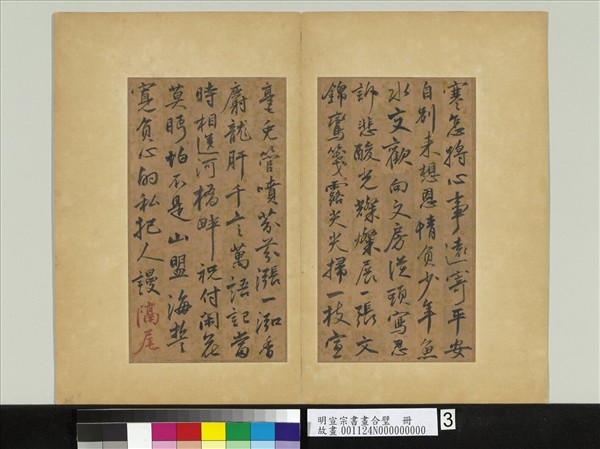 寒怎將心事遠寄平安
自別來想恩情負少年魚
水交歡向文房從頭寫思
訴悲酸光燦燦展一張文
錦鸞箋露尖尖掃一枝宣
毫兔管噴芬芬漲一泓香
麝龍肝千言萬語記當
時相送河橋畔祝付閑花
莫時怕不是山盟海誓
寬負心的私把人謾
滿尾
明宣宗書畫合璧 冊
故畫 001124N000000000
3